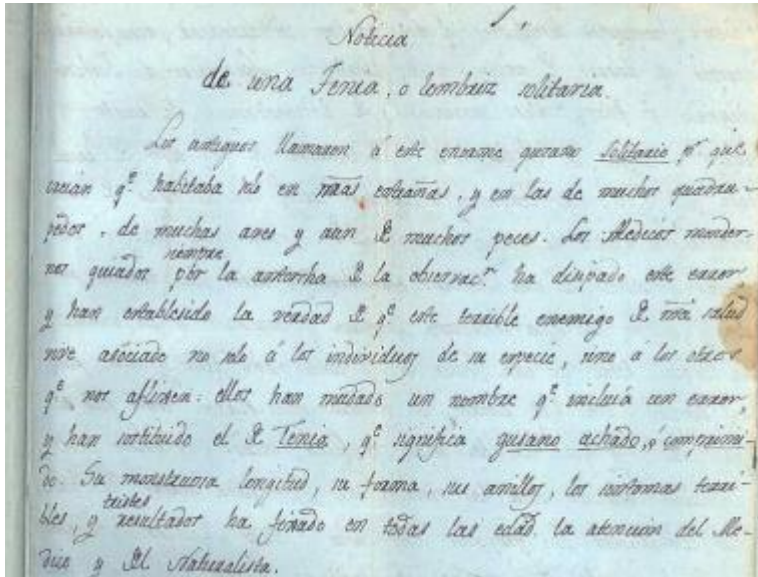 1,
Noticia
de una Tenia, o lombriz solitaria.
Los antiguos llamaron á este enorme gusano solitario pr. que
creían qe. habitaba solo en nras entrañas, y en las de muchos quadru-
pedos, de muchas aves y aun de muchos peces. Los Medicos moder-
nos guiados siempre por la antorcha de la observacn. ha disipado este error
y han establesido la verdad de qe. este terrible enemigo de nrâ salud
vive asociado no solo á los individuos de su especie, sino á los otros
qe. nos afligen: ellos han mudado un nombre qe. incluiá un error,
y han sostituido el de Tenia, qe. significa gusano achado, ó comprimi-
do. Su monstruosa longitud, su forma, sus anillos, los sintomas terri-
bles, y tristes resultados ha fixado en todas las edad. la atencion del Me-
dico y del Naturalista.